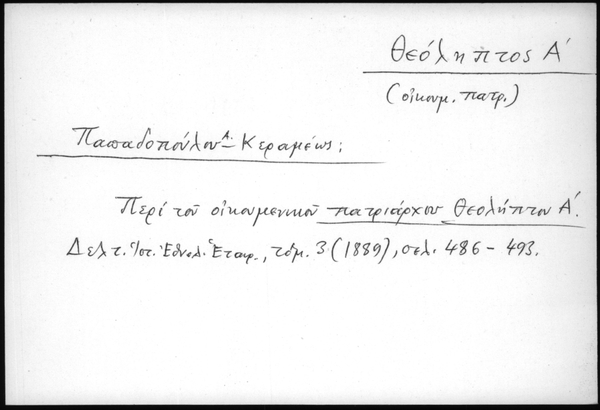 Θεόληπτος Α΄
(οἰκουμ. πατρ.)
Παπαδοπούλου Α. Κεραμέως:
Περὶ τοῦ οἰκουμενικοῦ πατριάρχου Θεολήπτου Α΄.
Δελτ. Ἱστ. Ἐθνολ. Ἑταιρ., τόμ. 3 (1889), σελ. 486 - 493.